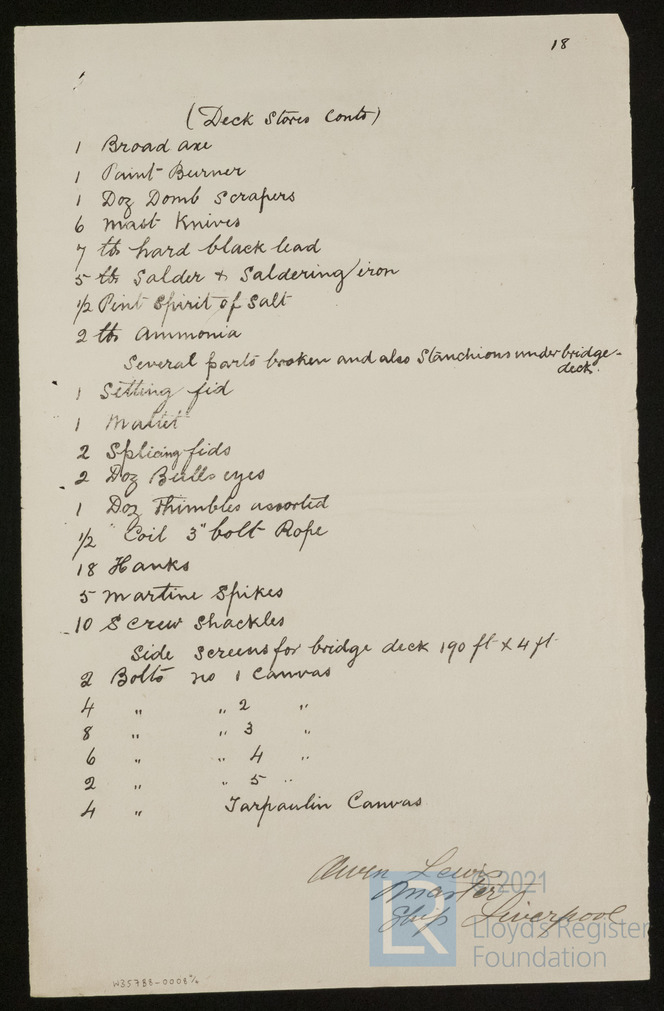 18
(Deck Stores Contd)
1 Broad axe
1 Paint Burner
1 Doz Domb Scrapers
6 Mast Knives
7 lbs hard black lead
5 lbs Salder & Saldering iron
1/2 Pint Spirit of Salt
2 lbs Ammonia
Several parts broken and also Stanchions under bridge-
deck.
1 Setting fid
1 Mallet
2 Splicing fids
2 Doz Bulls eyes
1 Doz Thimbles assorted
1/2 " Coil 3" bolt Rope
18 Hanks
5 Martine Spikes
10 Screw Shackles
Side Screens for bridge deck 190 ft x 4 ft
2 Bolts no 1 Canvas
4 " " 2 "
8 " " 3 "
6 " " 4 "
2 " " 5 "
4 " Tarpaulin Canvas
Owen Lewis
Master
Ship Liverpool
© 2021
LR
Lloyd's Register
Foundation
W35788-0008